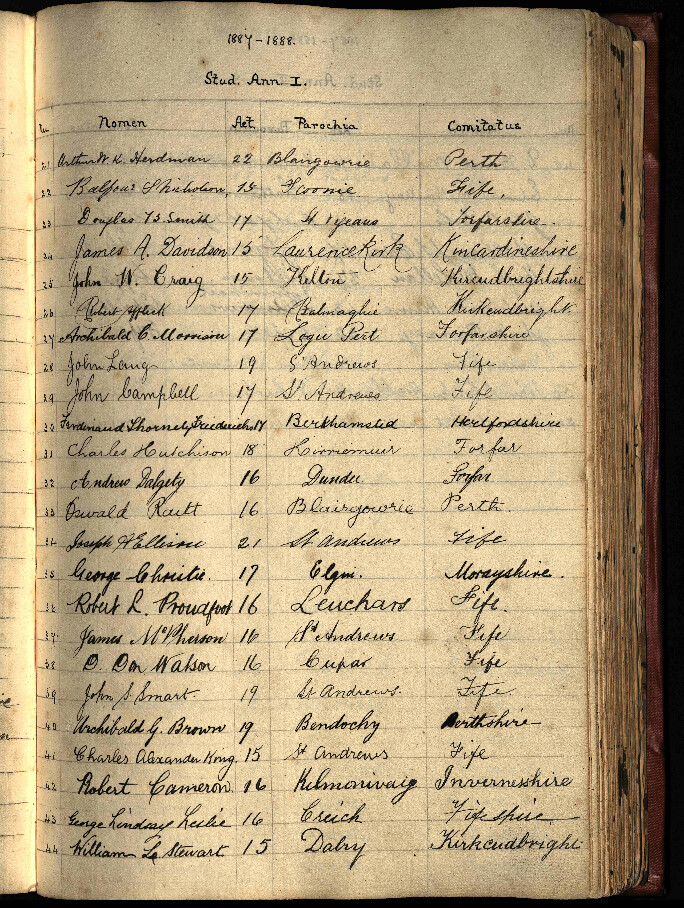 1887-1888.
Stud. Ann I.
Nomen Aet. Parochia Comitatus
21 Arthur W. K. Herdman 22 Blairgowrie Perth
22 Balfour S Nicholson, 15 Scoonie Fife,
23 Douglas B Smith 17 St. Forfarshire
24 James A. Davidson 15 Laurencekirk Kincardineshire
25 John W. Craig 15 Kelton Kircudbrightshire
26 Robert Affleck 17 Balmaghie Kirkcudbright
27 Archibald C. Morrison 17 Logie Pert Forfarshire
28 John Lang 19 St Andrews Fife
29 John Campbell 17 St Andrews Fife
30 Ferdinand Thornely Friederichs 17 Berkhamsted Hertfordshire
31 Charles Hutchison 18 Kirriemuir Forfar
32 Andrew Dalgety 16 Dundee Forfar
33 Oswald Raitt 16 Blairgowrie Perth.
34 Joseph Ellison 21 St Andrews Fife
35 George Christie. 17 Elgin. Morayshire.
36 Robert L. Proudfoot 16 Leuchars Fife.
37 James McPherson 16 St Andrews Fife
38 D. Don Watson 16 Cupar Fife
39 John S. Smart 19 St Andrews. Fife
40 Archibald G. Brown 19 Bendochy Perthshire
41 Charles Alexander Kong. 15 St Andrews Fife
42 Robert Cameron 16 Kilmonivaig Invernesshire
43 George Lindsay Leslie 16 Creich Fifeshire
44 William L Stewart 15 Dalry Kirkcudbright